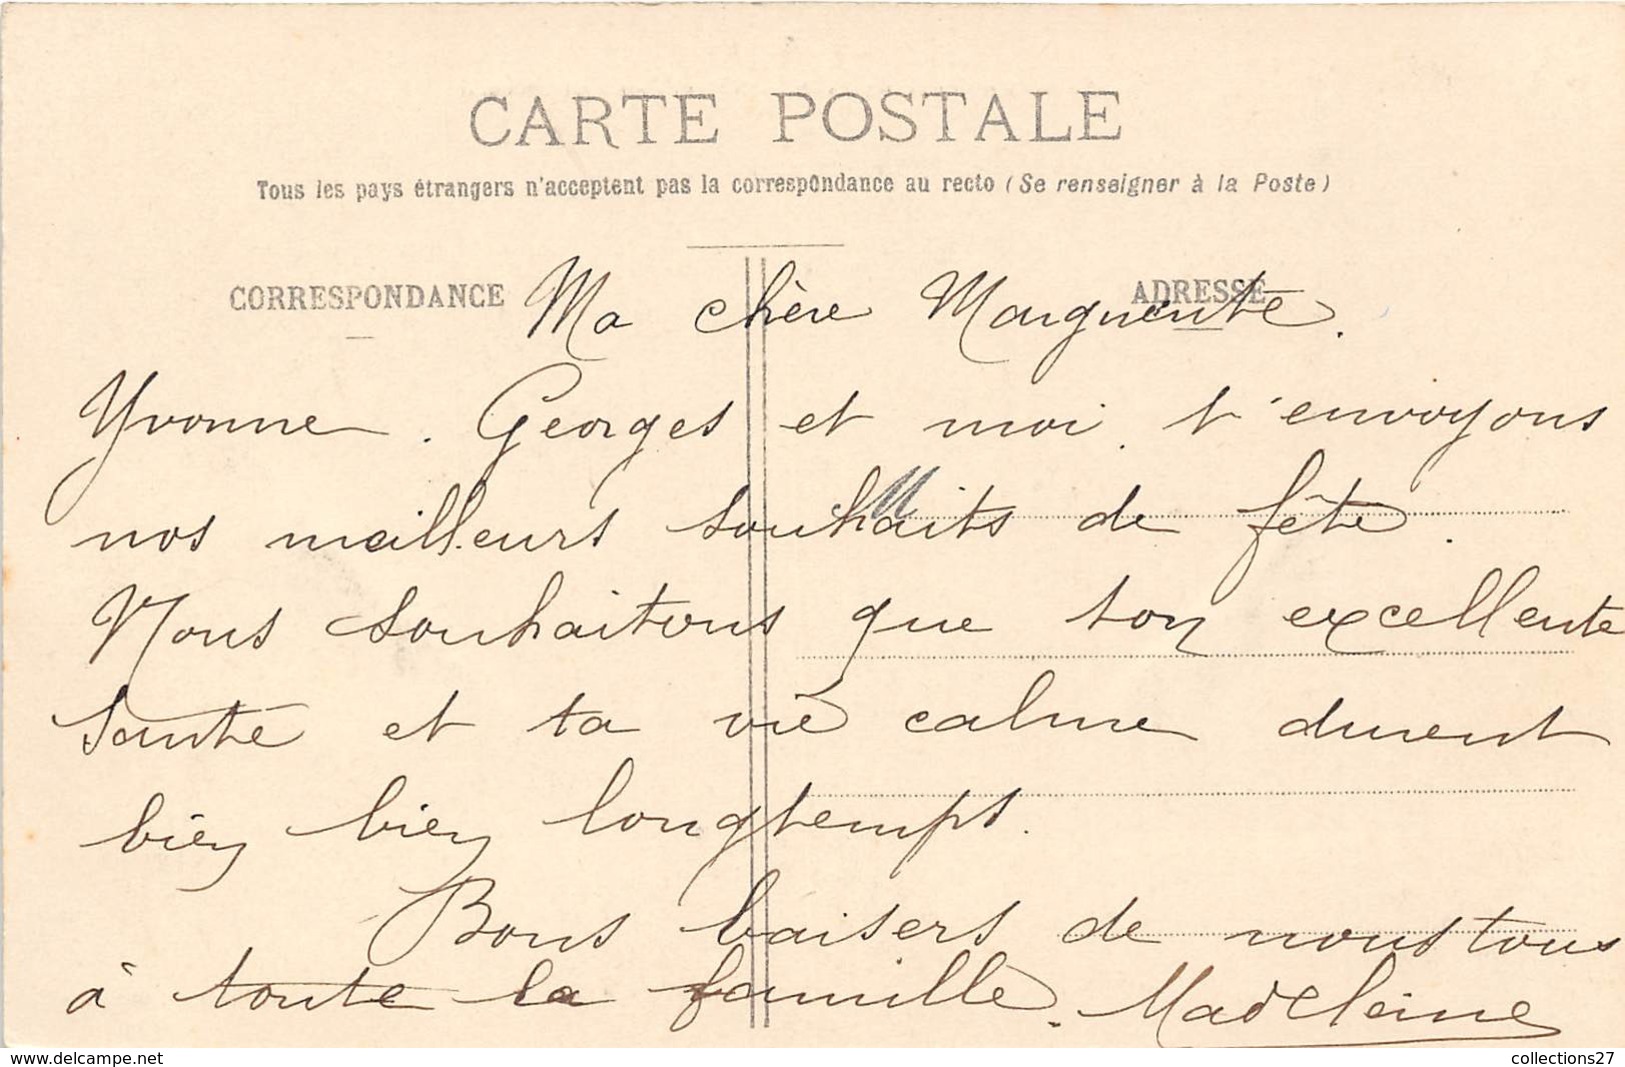 CARTE POSTALE
Tous les pays étrangers n'acceptent pas la correspondance au recto (Se renseigner à la Poste)
CORRESPONDANCE
ADRESSE
Ma chère Marguerite.
Yvonne. Georges et moi t'envoyons
nos meilleurs souhaits de fête.
Nous souhaitons que ton excellente
santé et ta vie calme durent
bien bien longtemps.
Bons baisers de nous tous
à toute la famille. Madeleine
M
www.delcampe.net
collections27